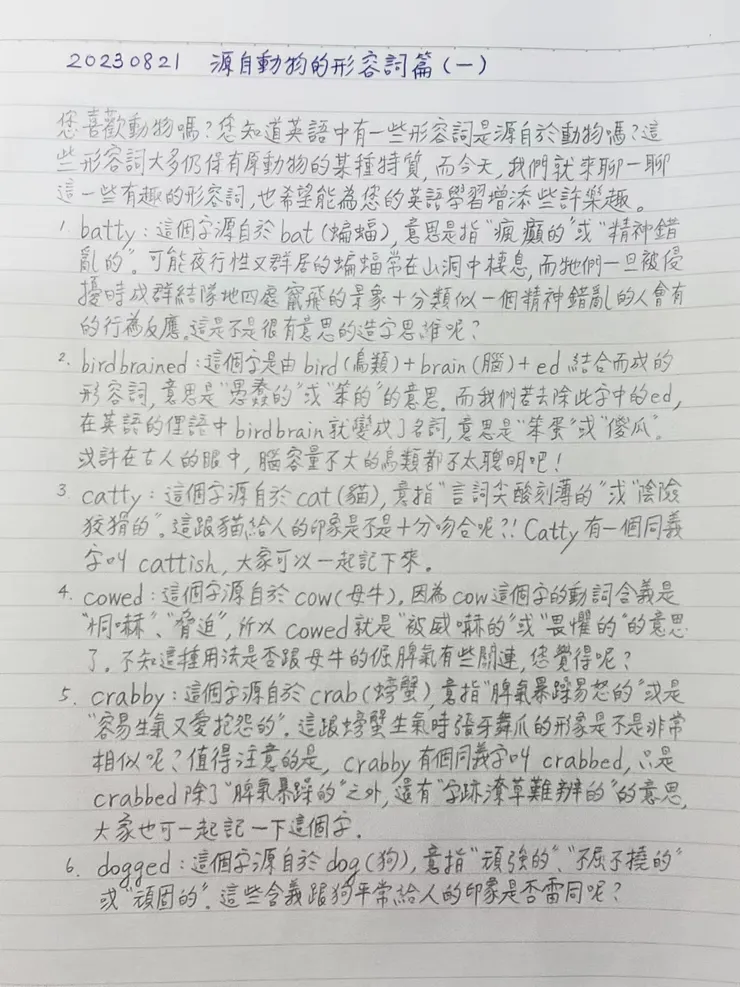 20230821 源自動物的形容詞篇(一)
您喜歡動物嗎?您知道英語中有一些形容詞是源自於動物嗎?這
些形容詞大多仍保有原動物的某種特質,而今天,我們就來聊一聊
這一些有趣的形容詞,也希望能為您的英語學習增添些許樂趣。
1. batty:這個字源自於bat(蝙蝠),意思是指"瘋癲的"或"精神錯
亂的"。可能夜行性又群居的蝙蝠常在山洞中棲息,而牠們一旦被侵
擾時成群結隊地四處竄飛的景象十分類似一個精神錯亂的人會有
的行為反應。這是不是很有意思的造字思維呢?
2. birdbrained:這個字是由bird(鳥類)+brain(腦)+ed結合而成的
形容詞,意思是"愚蠢的"或"笨的"的意思。而我們若去除此字中的ed,
在英語的俚語中birdbrain就變成了名詞,意思是"笨蛋"或"傻瓜"。
或許在古人的眼中,腦容量不大的鳥類都不太聰明吧!
3. catty:這個字源自於cat(貓),意指"言詞尖酸刻薄的"或"陰險
狡猾的"。這跟貓給人的印象是不是十分吻合呢?!Catty有一個同義
字叫cattish,大家可以一起記下來。
4. cowed:這個字源自於cow(母牛)。因為cow這個字的動詞含義是
"恫嚇"、"脅迫",所以cowed就是"被威嚇的"或"畏懼的"的意思
了。不知這種用法是否跟母牛的倔脾氣有些關連,您覺得呢?
5. crabby:這個字源自於crab(螃蟹),意指"脾氣暴躁易怒的"或是
"容易生氣又愛抱怨的"。這跟螃蟹生氣時張牙舞爪的形象是不是非常
相似呢?值得注意的是,crabby有個同義字叫crabbed,只是
crabbed除了"脾氣暴躁的"之外,還有"字跡潦草難辨的"的意思,
大家也可一起記一下這個字。
6. dogged:這個字源自於dog(狗),意指"頑強的"、"不屈不撓的"
或"頑固的"。這些含義跟狗平常給人的印象是否雷同呢?